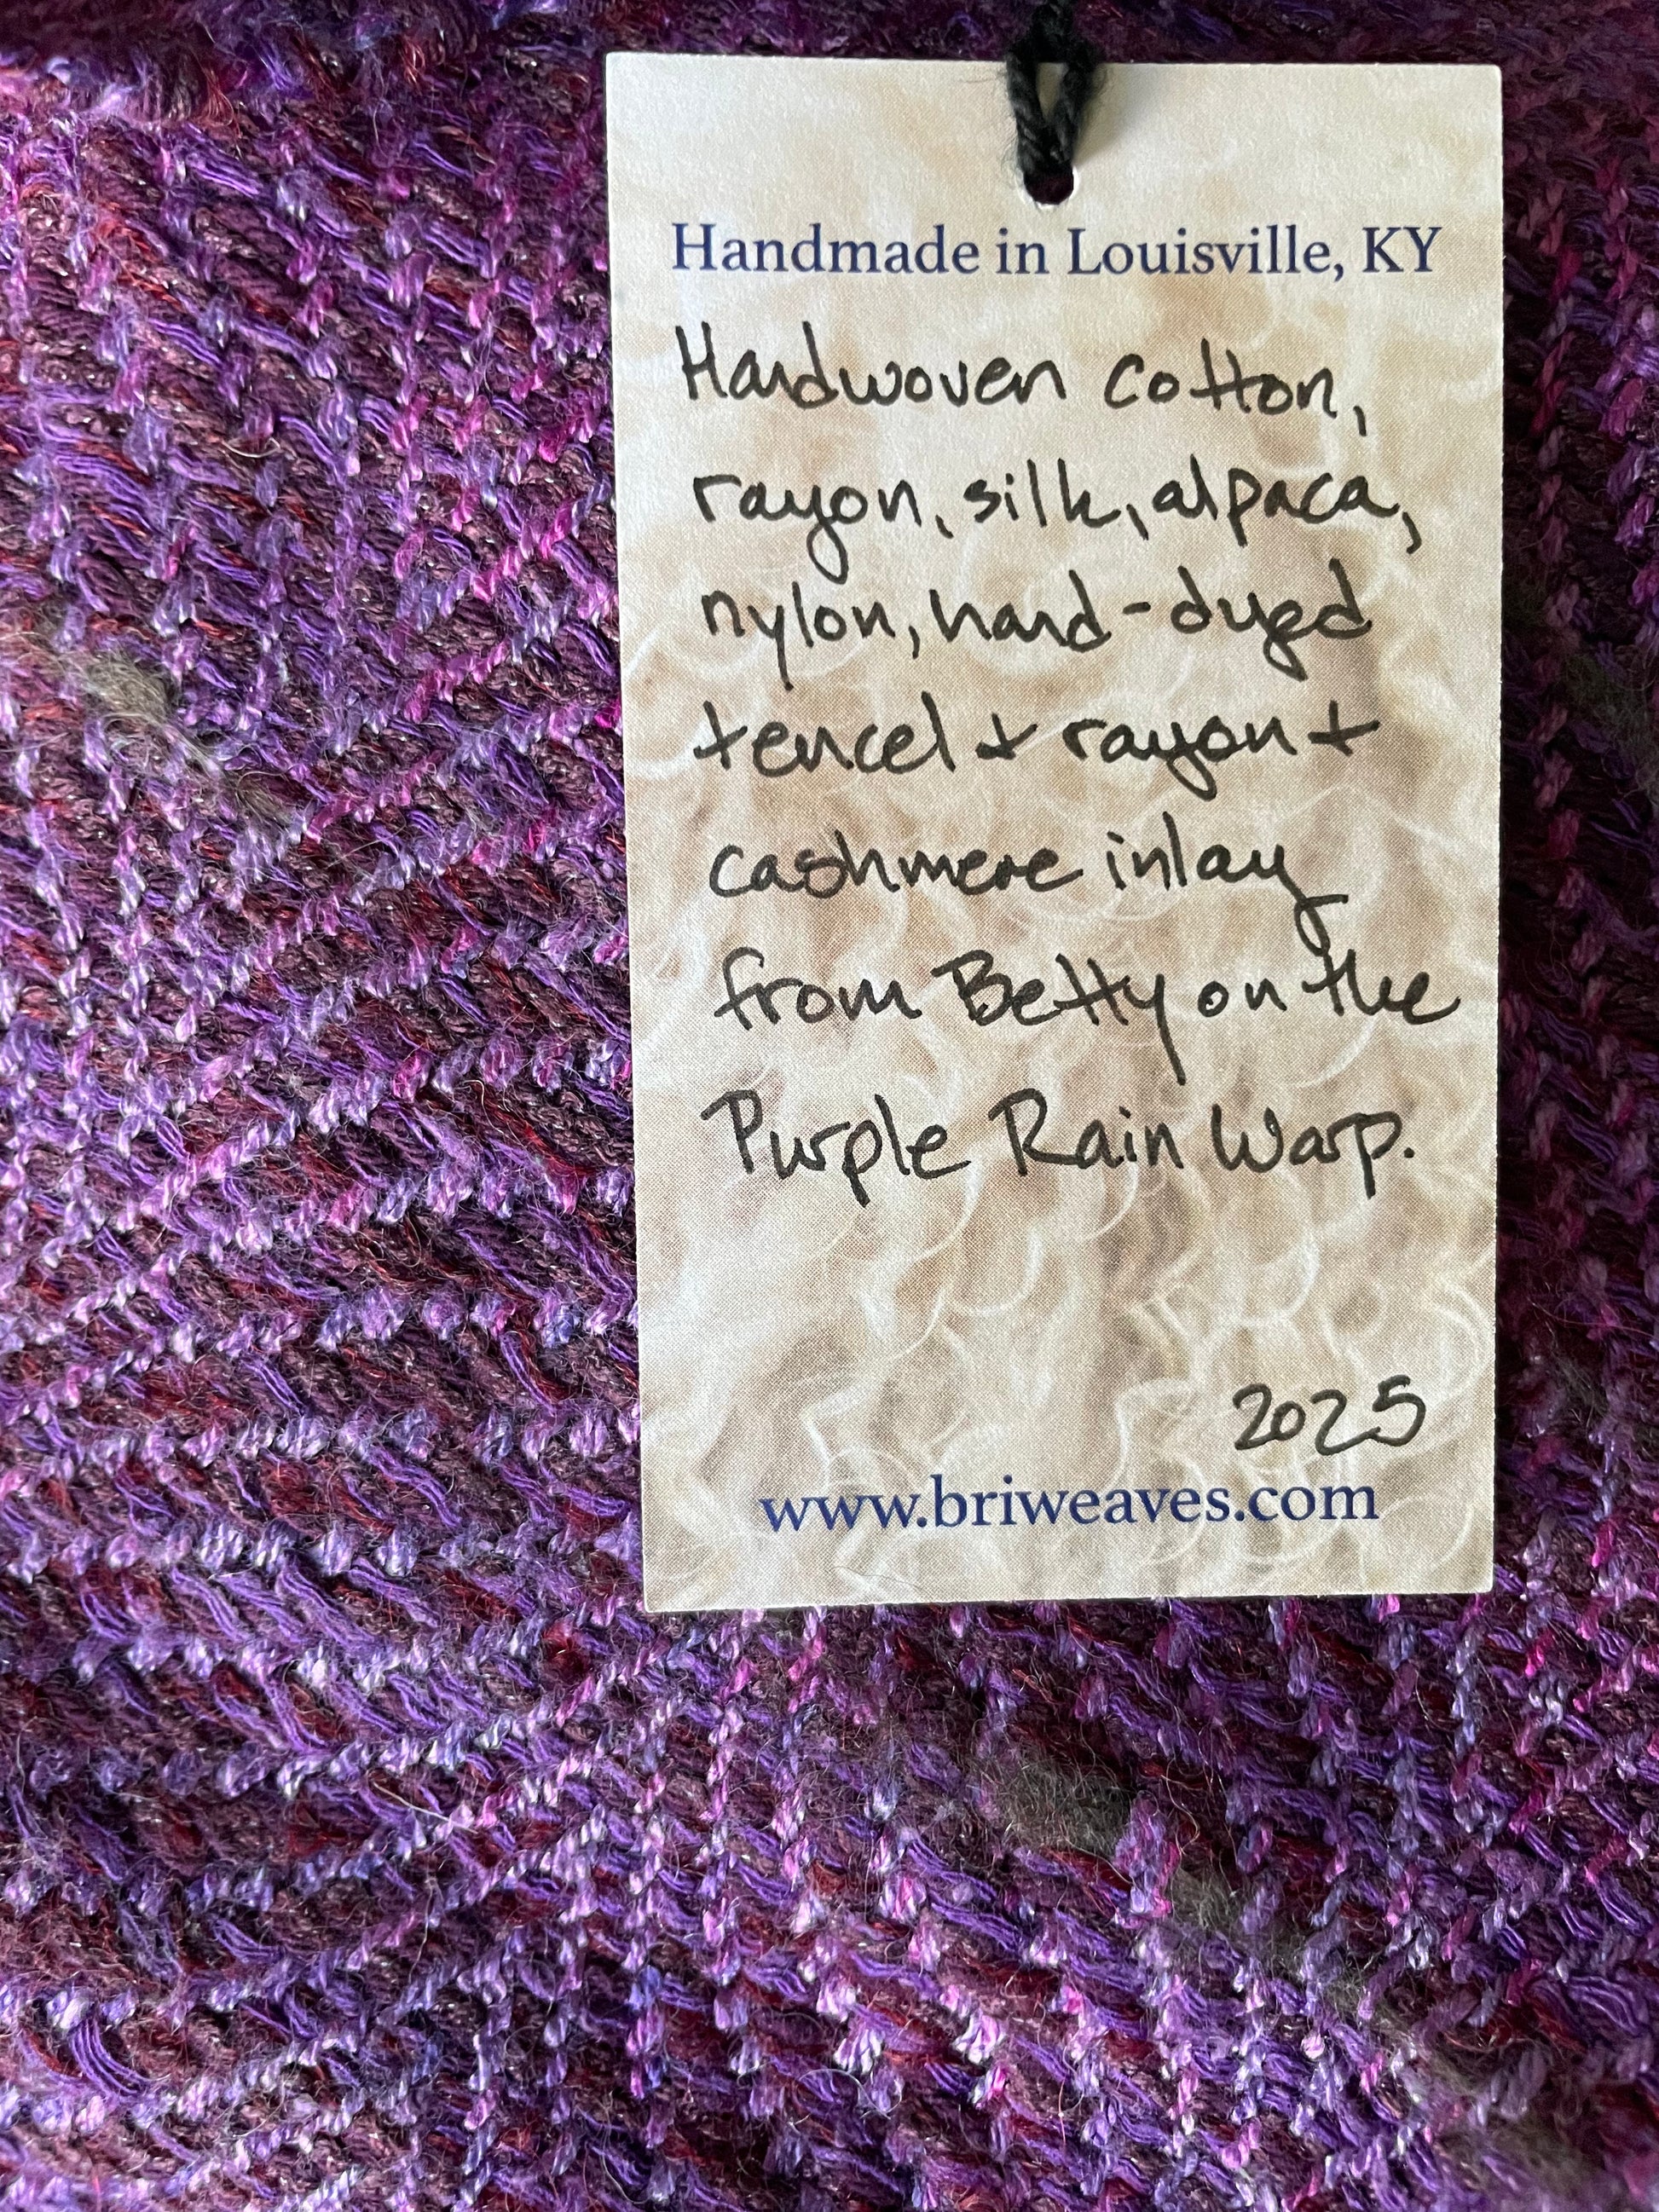 Handmade in Louisville, KY
Handwoven cotton,
rayon, silk, alpaca,
nylon, hand-dyed
tencel + rayon +
cashmere inlay
from Betty on the
Purple Rain Warp.
2025
www.briweaves.com